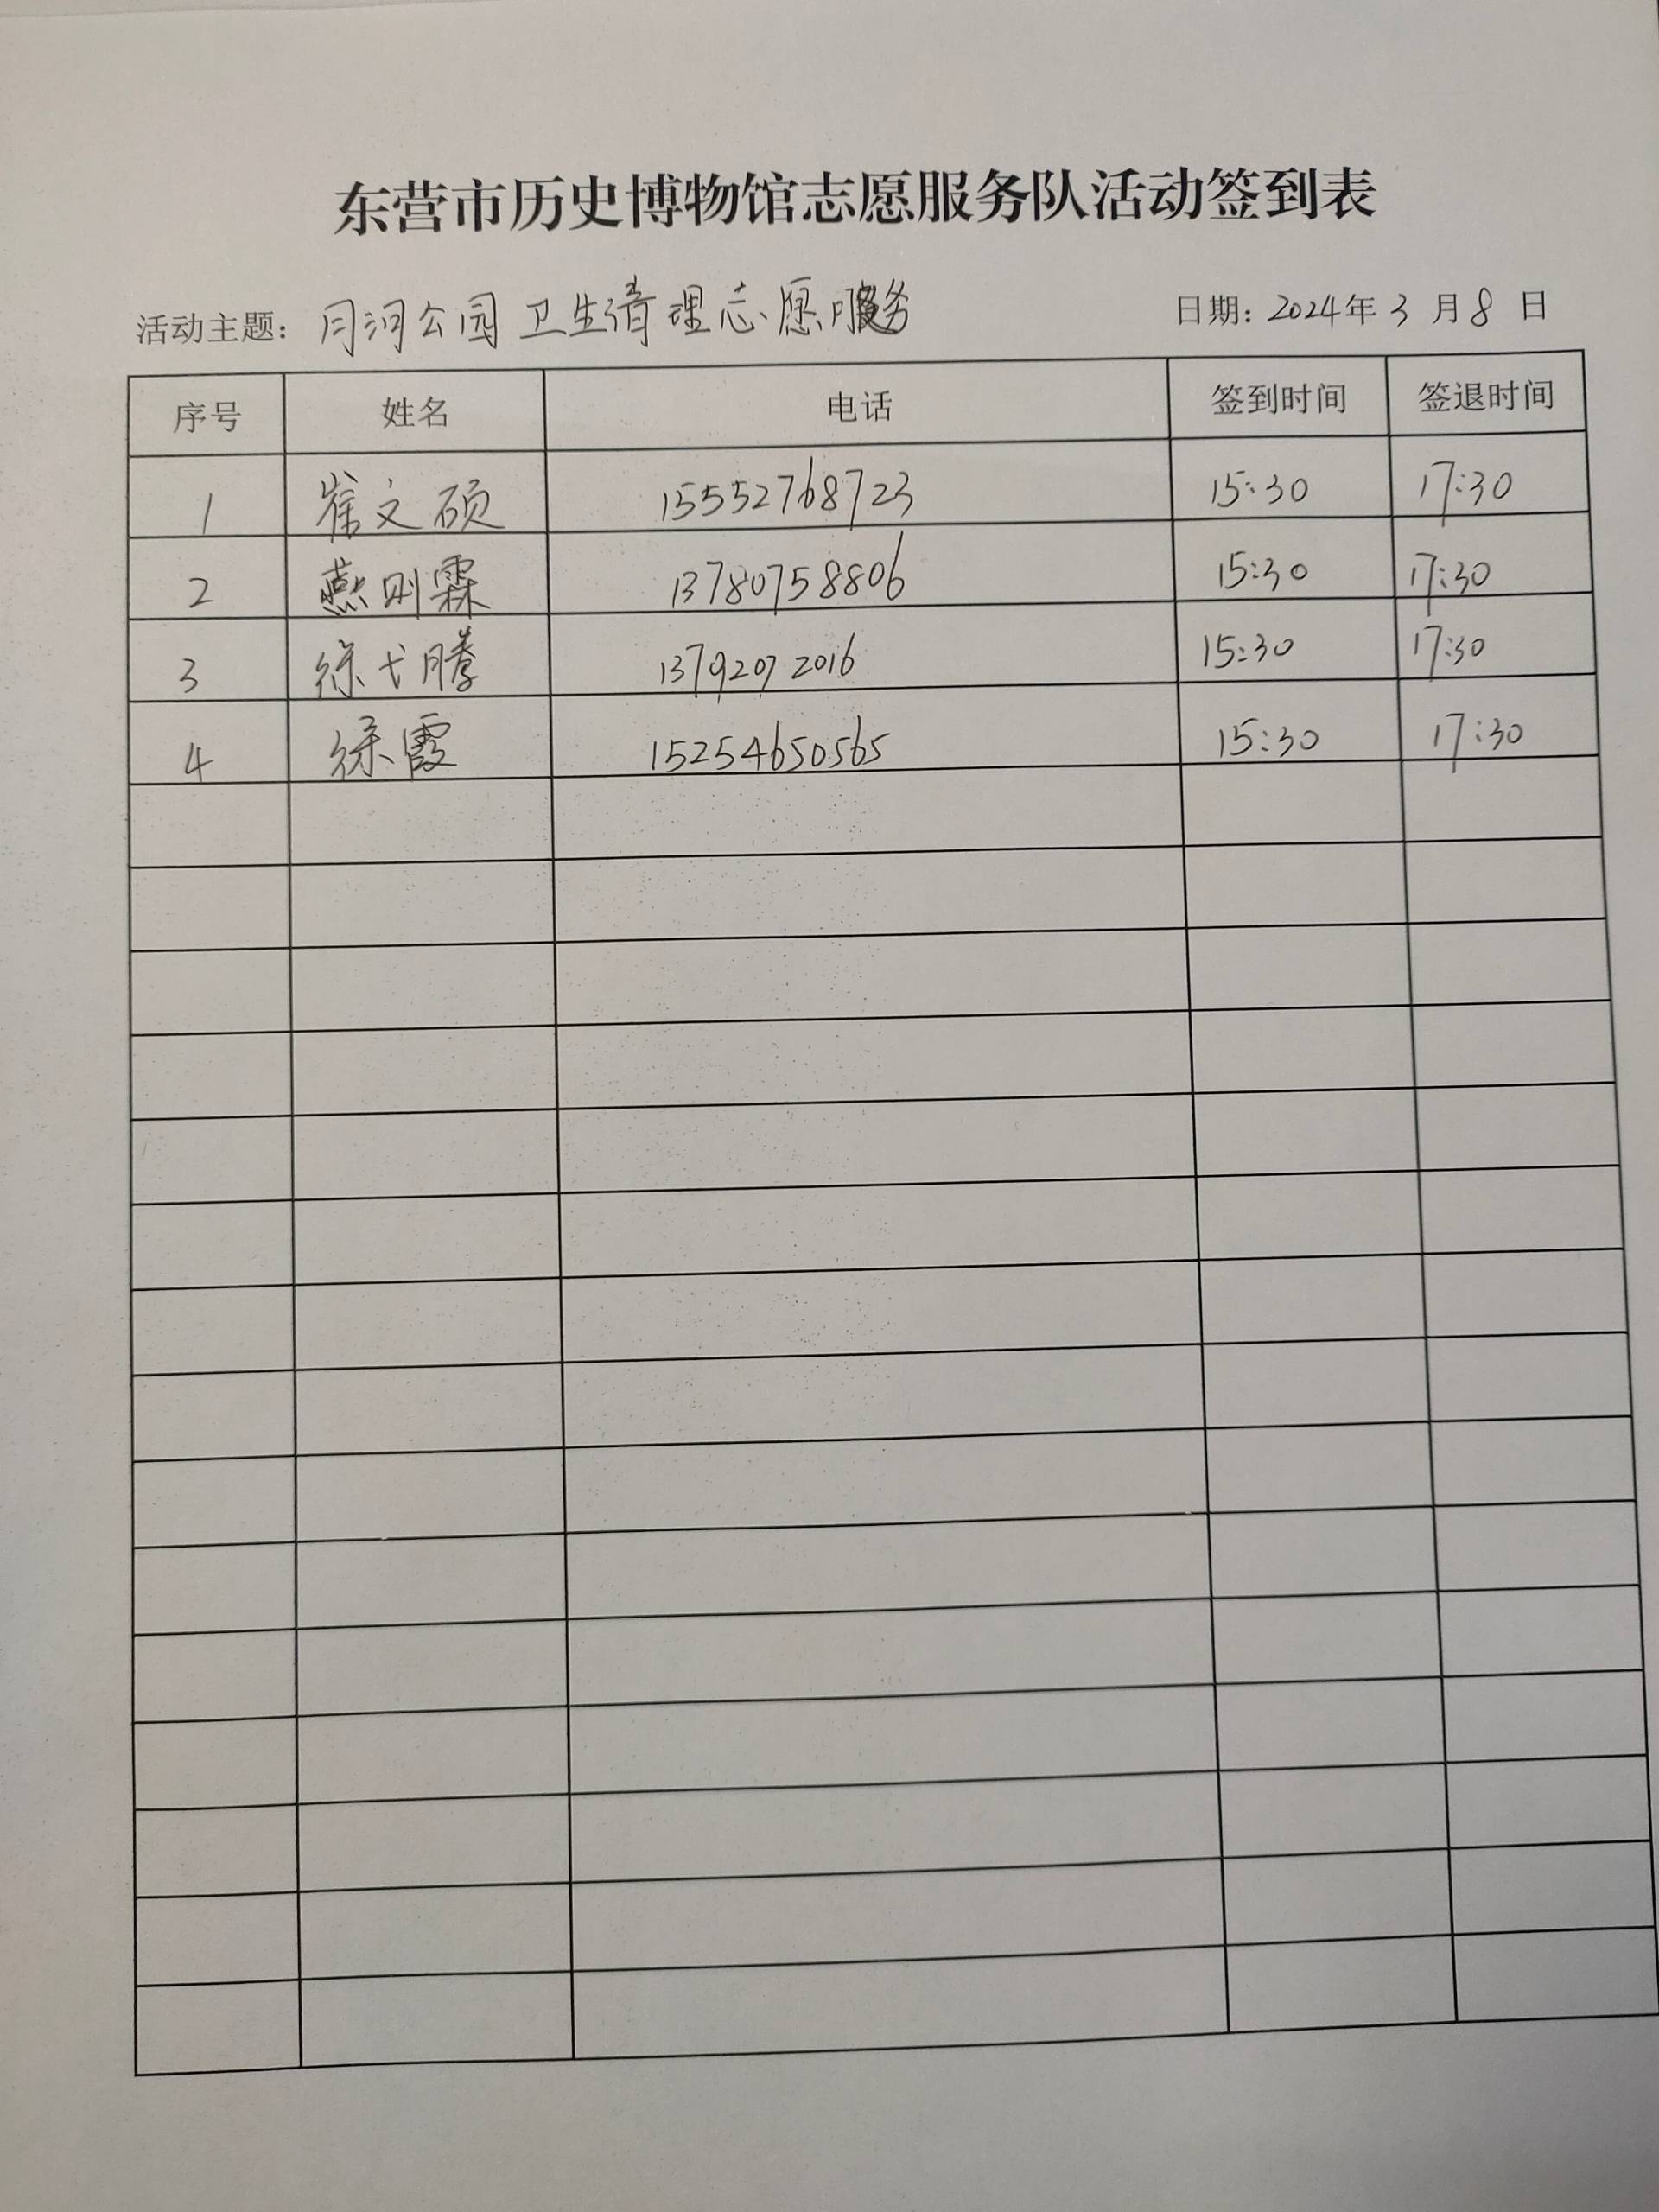 东营市历史博物馆志愿服务队活动签到表
活动主题：月河公园卫生清理志愿服务 日期：2024年3月8日
序号 姓名 电话 签到时间 签退时间
1 崔文硕 15552768723 15:30 17:30
2 燕则霖 13780758806 15:30 17:30
3 徐弋腾 13792072016 15:30 17:30
4 徐霞 15254650565 15:30 17:30